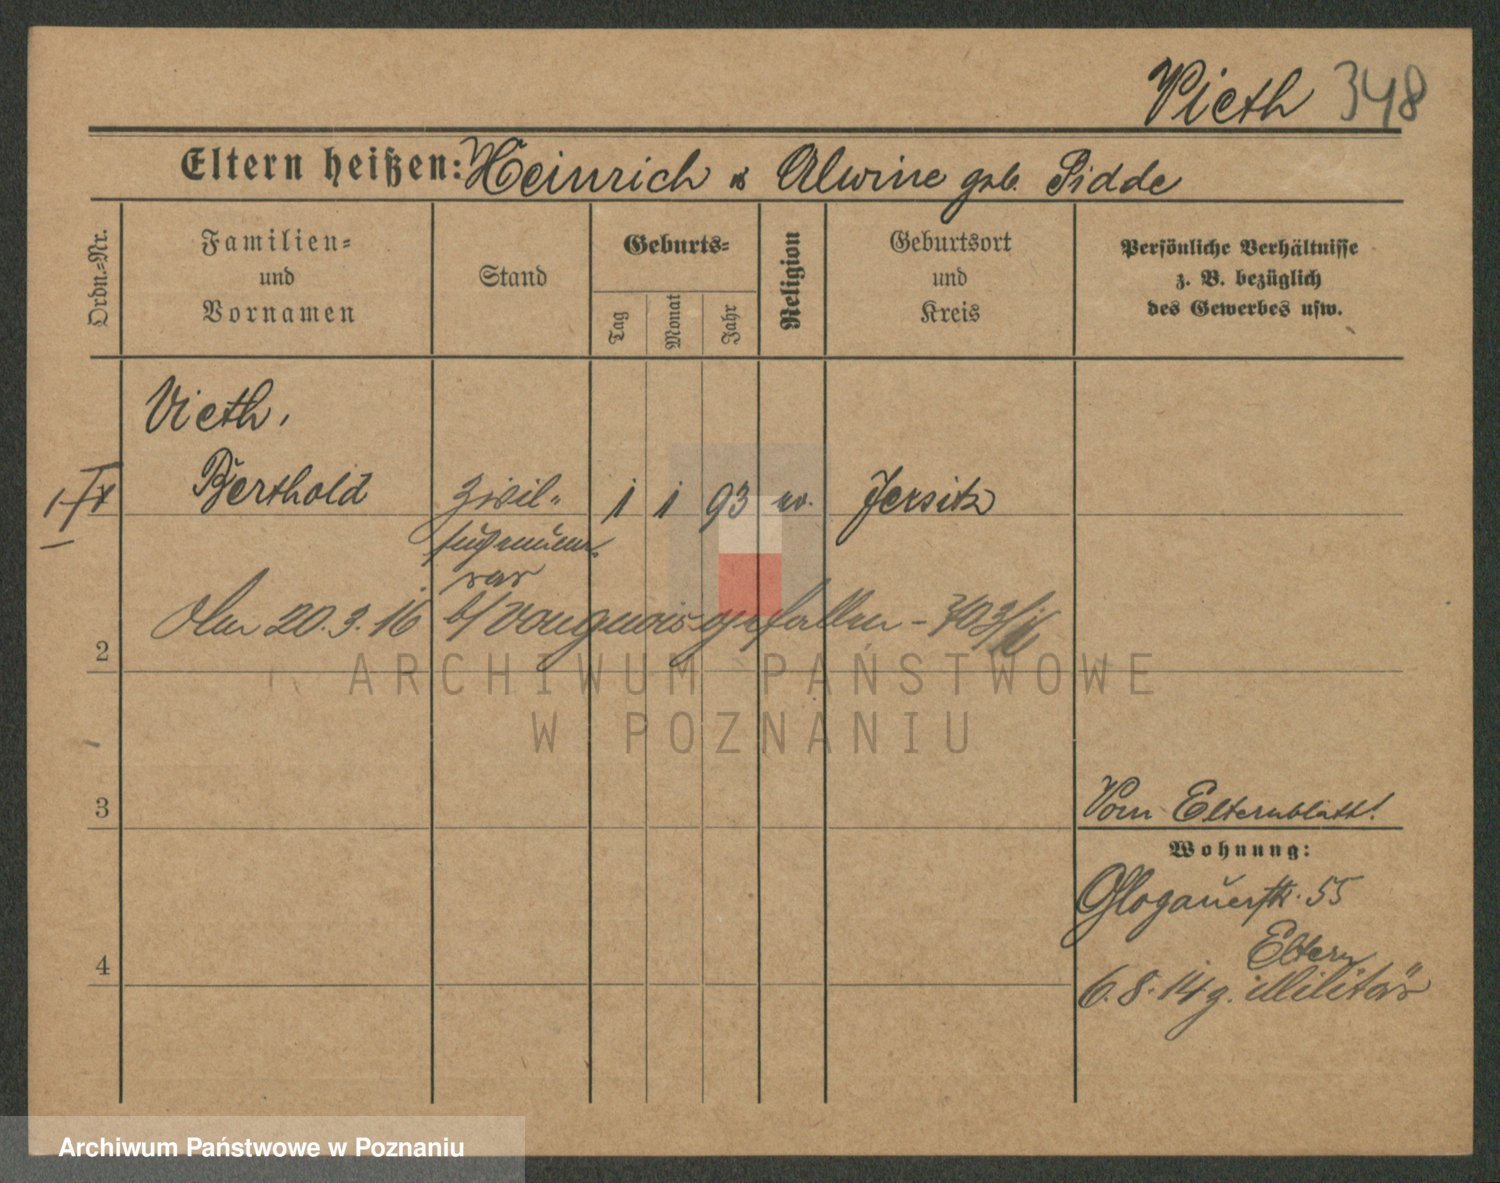 Vieth 348
Eltern heißen: Heinrich u Alwine geb. Pidde
Ordn.=Nr.
Familien=
und
Vornamen
Stand
Geburts=
Tag
Monat
Jahr
Religion
Geburtsort
und
Kreis
Persönliche Verhältnisse
z. B. bezüglich
des Gewerbes usw.
Vieth,
Berthold Zivil- 1 1 93 ev. Jersitz
Am 20.3.16 b/ gefallen -
2
ARCHIWUM PAŃSTWOWE
W POZNANIU
3
Vom Elternblatt!
Wohnung:
Glogauerstr. 55
Eltern
4
6.8.14 z. Militär
Archiwum Państwowe w Poznaniu